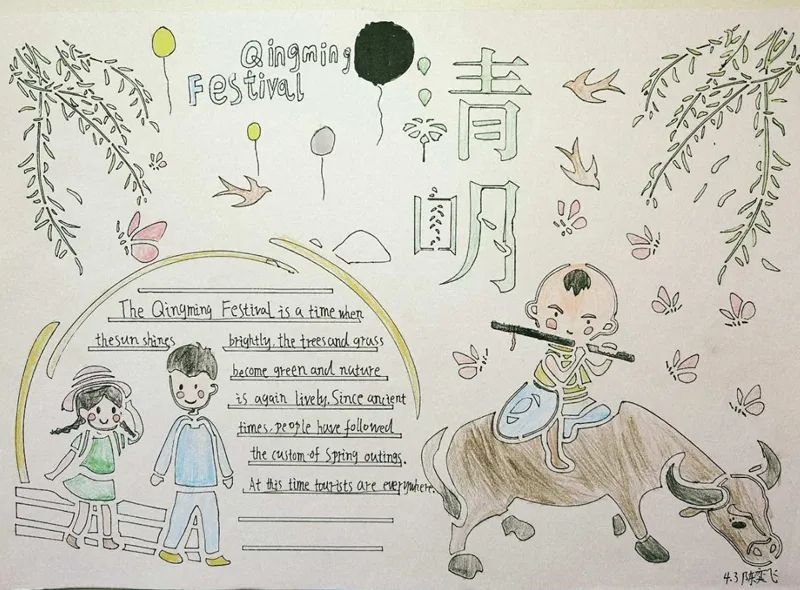 Qingming
Festival
清
明
The Qingming Festival is a time when
the sun shines brightly, the trees and grass
become green and nature
is again lively. Since ancient
times, people have followed
the custom of Spring outings.
At this time tourists are everywhere.
4.3 陈奕飞